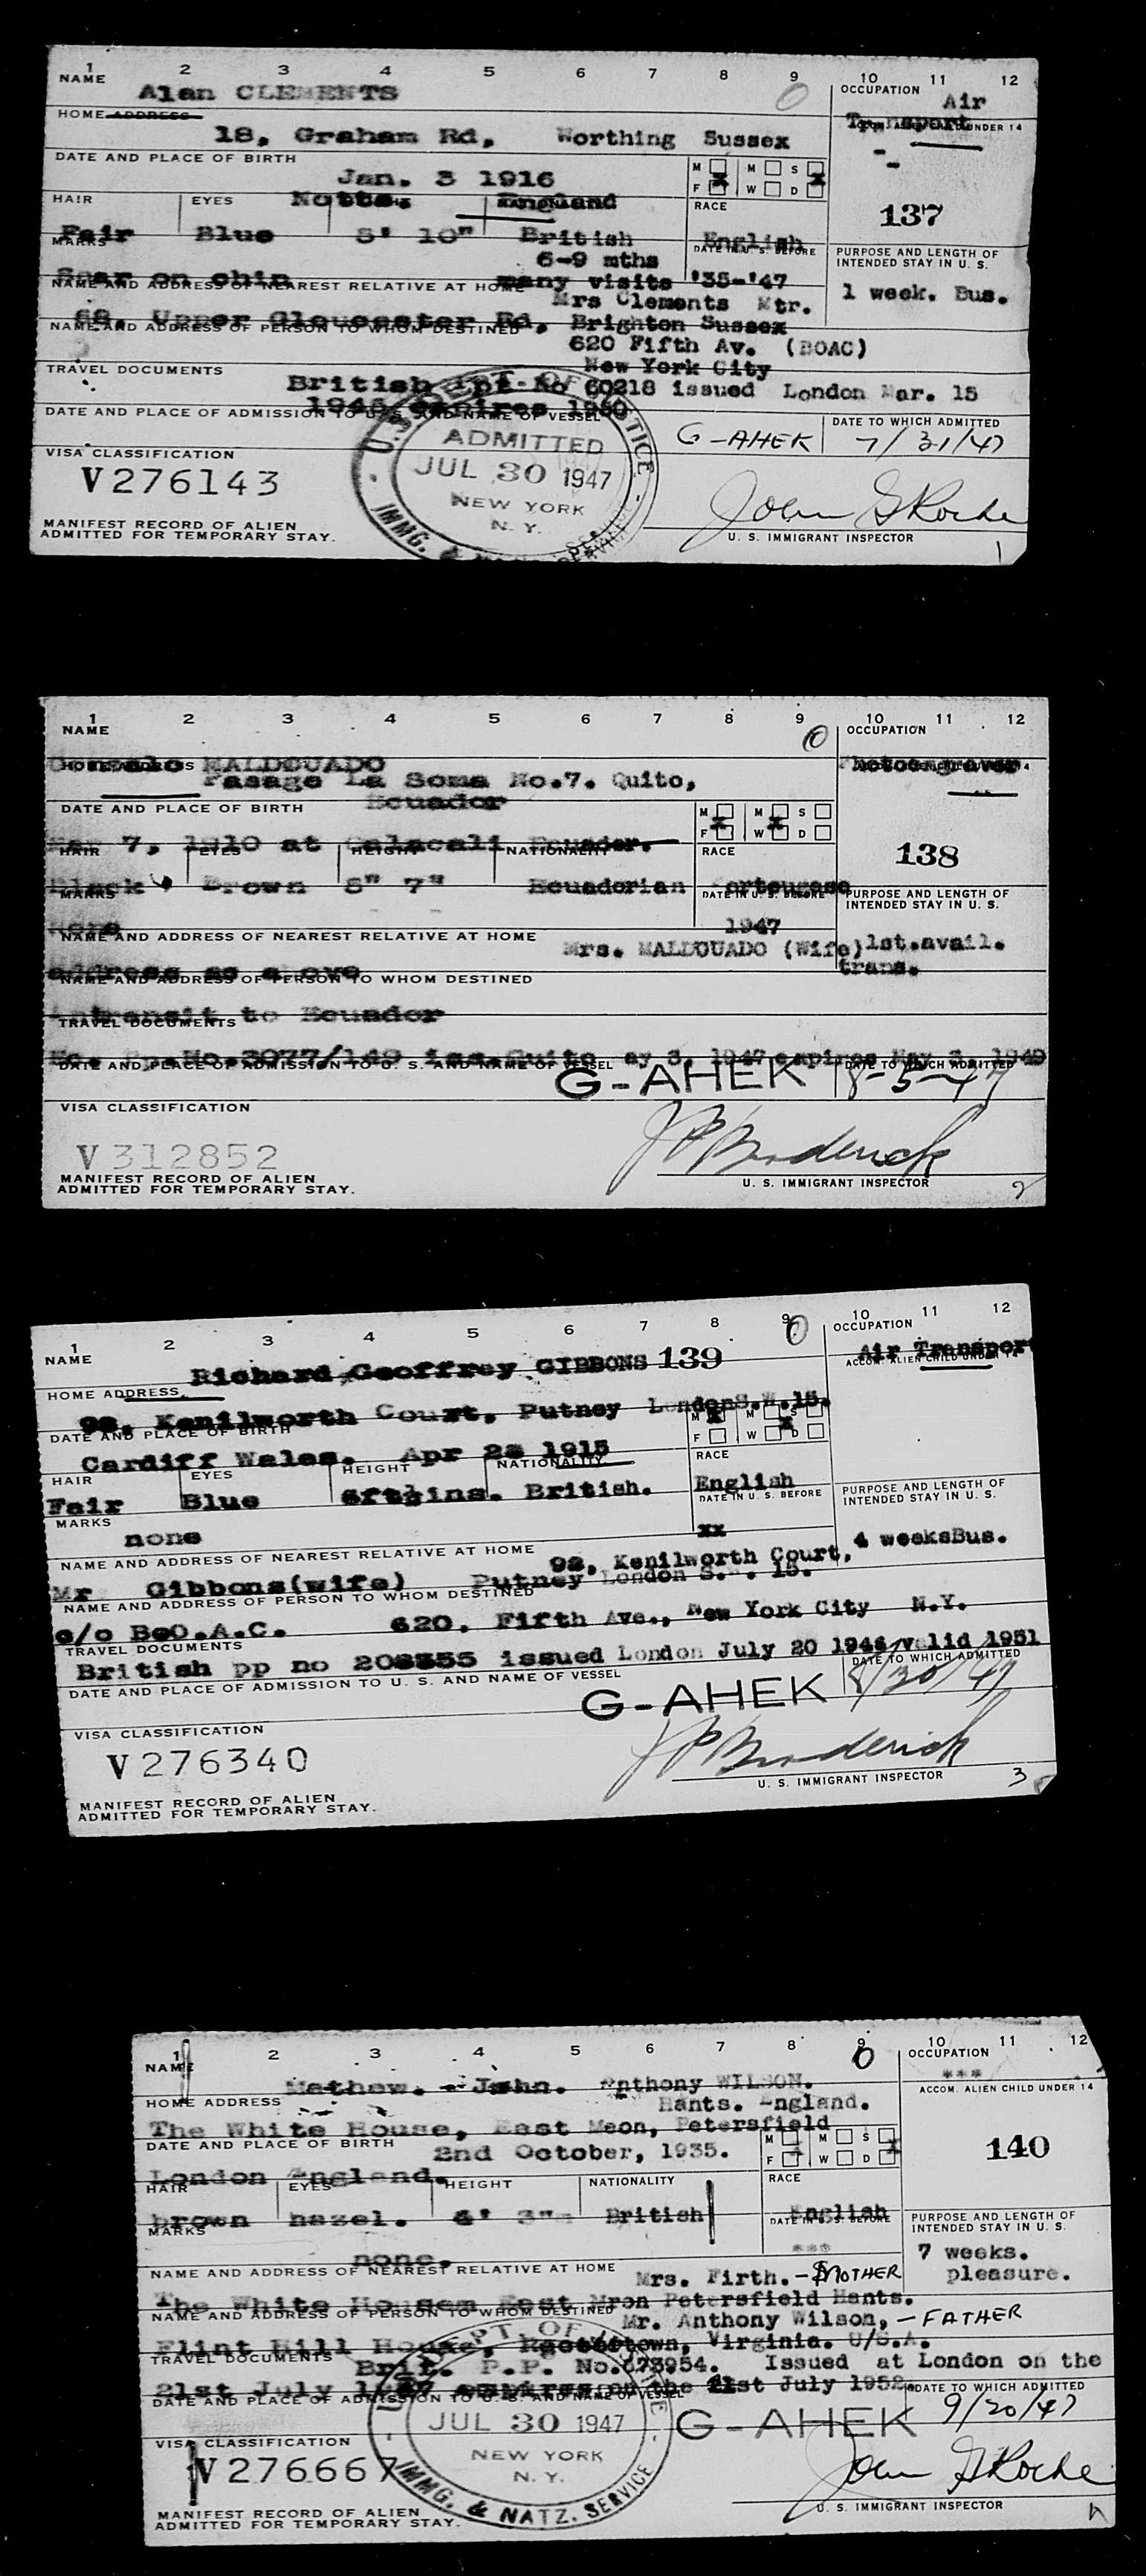 1 2 3 4 5 6 7 8 9 10 11 12
NAME OCCUPATION
Alan CLEMENTS Air
HOME ADDRESS Transport UNDER 14
18, Graham Rd, Worthing Sussex
DATE AND PLACE OF BIRTH M M S
Jan. 3 1916 F W D
HAIR EYES Notts. England RACE 137
Fair Blue 5' 10" British English
MARKS DATE IN U. S. BEFORE PURPOSE AND LENGTH OF
6-9 mths INTENDED STAY IN U. S.
Scar on chin many visits '35-'47
NAME AND ADDRESS OF NEAREST RELATIVE AT HOME 1 week. Bus.
Mrs Clements Mtr.
68, Upper Gloucester Rd, Brighton Sussex
NAME AND ADDRESS OF PERSON TO WHOM DESTINED
620 Fifth Av. (BOAC)
New York City
TRAVEL DOCUMENTS
British ppt No 60218 issued London Mar. 15
1945 expires 1950
DATE AND PLACE OF ADMISSION TO U. S. AND NAME OF VESSEL DATE TO WHICH ADMITTED
G-AHEK 7/31/47
U.S. DEPT. OF JUSTICE
ADMITTED
JUL 30 1947
NEW YORK
N. Y.
IMMG. & NATZ. SERVICE
VISA CLASSIFICATION
V276143
John G Roche
MANIFEST RECORD OF ALIEN
ADMITTED FOR TEMPORARY STAY.
U. S. IMMIGRANT INSPECTOR
1
1 2 3 4 5 6 7 8 9 10 11 12
NAME OCCUPATION
MALDOUADO Photoengraver
HOME ADDRESS
Pasage La Soma No.7. Quito,
Ecuador
DATE AND PLACE OF BIRTH M M S
7, 1910 at Calacali Ecuador. F W D
HAIR EYES HEIGHT NATIONALITY RACE 138
Black Brown 5" 7" Ecuadorian
MARKS DATE IN U. S. BEFORE PURPOSE AND LENGTH OF
INTENDED STAY IN U. S.
None 1947
NAME AND ADDRESS OF NEAREST RELATIVE AT HOME
Mrs. MALDOUADO (Wife) 1st.avail.
trans.
address as above
NAME AND ADDRESS OF PERSON TO WHOM DESTINED
Intransit to Ecuador
TRAVEL DOCUMENTS
Ec. Pp.No.3977/149 iss.Quito May 3, 1947 expires May 3, 1949
DATE AND PLACE OF ADMISSION TO U. S. AND NAME OF VESSEL DATE TO WHICH ADMITTED
G-AHEK 8-5-47
VISA CLASSIFICATION
V312852
J P Broderick
MANIFEST RECORD OF ALIEN
ADMITTED FOR TEMPORARY STAY.
U. S. IMMIGRANT INSPECTOR
2
1 2 3 4 5 6 7 8 9 10 11 12
NAME OCCUPATION
Richard Geoffrey GIBBONS 139 Air Transport
ACCOM. ALIEN CHILD UNDER 14
HOME ADDRESS
Kenilworth Court, Putney London S.W.15.
DATE AND PLACE OF BIRTH M M S
F W D
Cardiff Wales. Apr 1915
HAIR EYES HEIGHT NATIONALITY RACE
Fair Blue British. English
MARKS DATE IN U. S. BEFORE PURPOSE AND LENGTH OF
INTENDED STAY IN U. S.
none xx
NAME AND ADDRESS OF NEAREST RELATIVE AT HOME 4 weeksBus.
Kenilworth Court,
Mr Gibbons(wife) Putney London S. . 15.
NAME AND ADDRESS OF PERSON TO WHOM DESTINED
c/o BeO.A.C. 620, Fifth Ave., New York City N.Y.
TRAVEL DOCUMENTS
British pp no issued London July 20 1946/valid 1951
DATE AND PLACE OF ADMISSION TO U. S. AND NAME OF VESSEL DATE TO WHICH ADMITTED
G-AHEK 8/30/47
VISA CLASSIFICATION
V276340
J P Broderick
MANIFEST RECORD OF ALIEN
ADMITTED FOR TEMPORARY STAY.
U. S. IMMIGRANT INSPECTOR
3
1 2 3 4 5 6 7 8 9 10 11 12
NAME OCCUPATION
Mathew. - John. Anthony WILSON. ***
ACCOM. ALIEN CHILD UNDER 14
HOME ADDRESS Hants. England.
The White House, East Meon, Petersfield
DATE AND PLACE OF BIRTH M M S
2nd October, 1935. F W D 140
London England.
HAIR EYES HEIGHT NATIONALITY RACE
brown hazel. 4' 3" British English
MARKS DATE IN U. S. BEFORE PURPOSE AND LENGTH OF
INTENDED STAY IN U. S.
none. *** 7 weeks.
NAME AND ADDRESS OF NEAREST RELATIVE AT HOME pleasure.
Mrs. Firth. - MOTHER
The White Housem East Mron Petersfield Hants.
NAME AND ADDRESS OF PERSON TO WHOM DESTINED
Mr. Anthony Wilson, - FATHER
Flint Hill House, Virginia. U/S.A.
TRAVEL DOCUMENTS
Brit. P.P. No.673954. Issued at London on the
21st July 1947 expires on the 21st July 1952.
DATE AND PLACE OF ADMISSION TO U. S. AND NAME OF VESSEL DATE TO WHICH ADMITTED
G-AHEK 9/20/47
JUL 30 1947
NEW YORK
N. Y.
IMMG. & NATZ. SERVICE
VISA CLASSIFICATION
V276667
John G Roche
MANIFEST RECORD OF ALIEN
ADMITTED FOR TEMPORARY STAY.
U. S. IMMIGRANT INSPECTOR